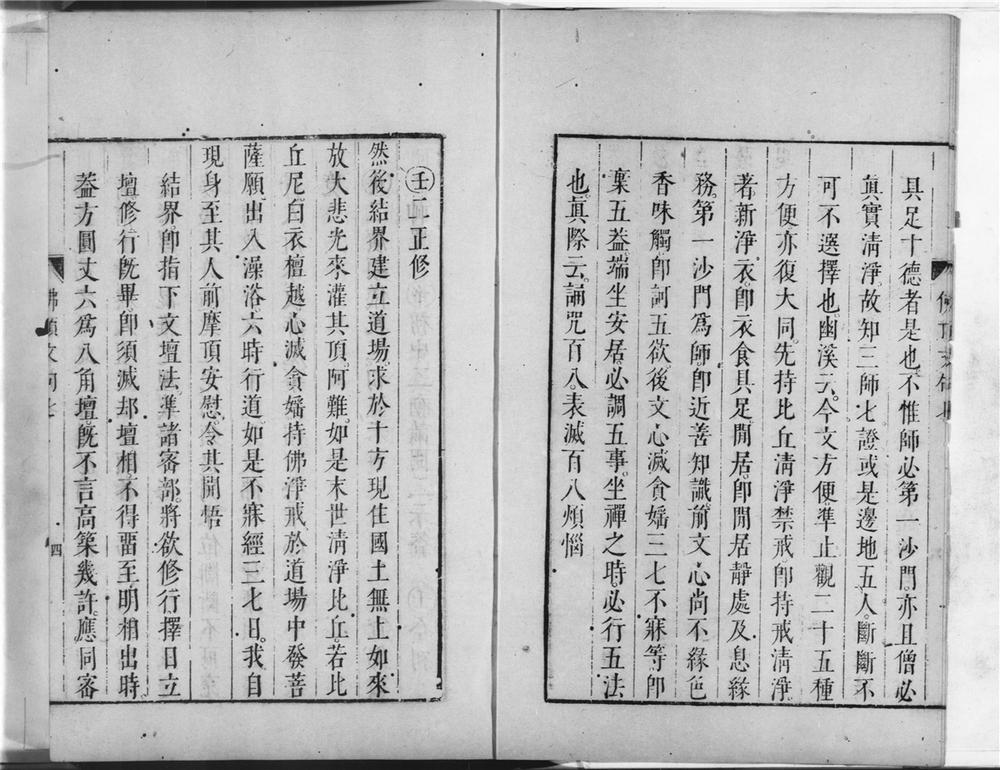 具足十德者是也不惟師必第一沙門亦且僧必
眞實清淨故知三師七證或是邊地五人斷斷不
可不選擇也幽溪云今文方便準止觀二十五種
方便亦復大同先持比丘清淨禁戒卽持戒清淨
著新淨衣卽衣食具足閒居卽閒居靜處及息緣
務第一沙門爲師卽近善知識前文心尚不緣色
香味觸卽訶五欲後文心滅貪婬三七不寐等卽
棄五葢端坐安居必調五事坐禪之時必行五法
也眞際云誦咒百八表滅百八煩惱
佛頂文句七
㊂壬二正修
然後結界建立道場求於十方現住國土無上如來
放大悲光來灌其頂阿難如是末世清淨比丘若比
丘尼白衣檀越心滅貪婬持佛淨戒於道場中發菩
薩願出入澡浴六時行道如是不寐經三七日我自
現身至其人前摩頂安慰令其開悟
結界卽指下文壇法準諸密部將欲修行擇日立
壇修行旣畢卽須滅却壇相不得畱至明相出時
葢方圓丈六爲八角壇旣不言高築幾許應同密
佛頂文句七
四